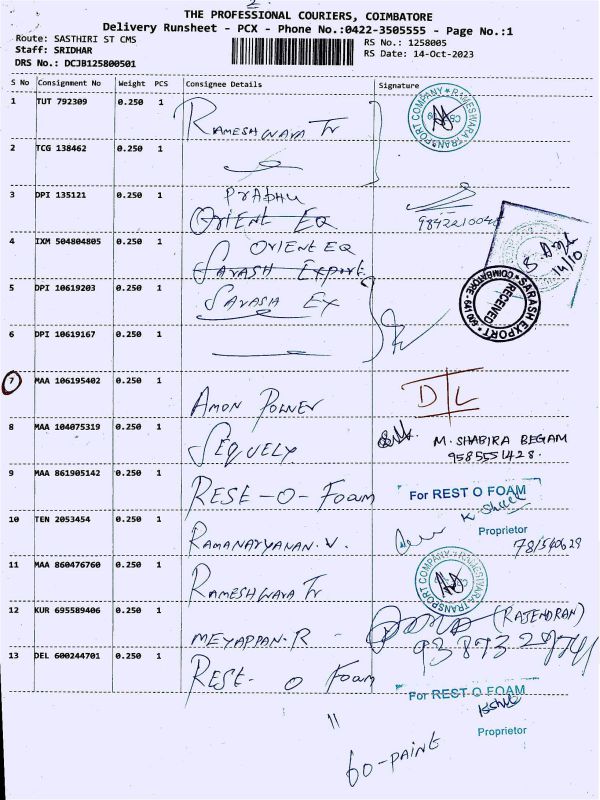 2
THE PROFESSIONAL COURIERS, COIMBATORE
Delivery Runsheet - PCX - Phone No.:0422-3505555 - Page No.:1
Route: SASTHIRI ST CMS
RS No.: 1258005
Staff: SRIDHAR
RS Date: 14-Oct-2023
DRS No.: DCJB125800501
S No Consignment No Weight PCS Consignee Details Signature
1 TUT 792309 0.250 1 RAMESHWARA Tr RAMESHWARA TRANSPORT COMPANY
2 TCG 138462 0.250 1
3 DPI 135121 0.250 1 PRABHU
ORIENT EQ
4 IXM 504804805 0.250 1 ORIENT EQ
SARASH EXPORT
5 DPI 10619203 0.250 1 SARASH EX SARASH EXPORT RECEIVED COIMBATORE - 641 001
14/10
6 DPI 10619167 0.250 1
7 MAA 106195402 0.250 1 AMON POWER DIL
8 MAA 104075319 0.250 1 SEQUELY M. SHABIRA BEGAM
9585551428.
9 MAA 861905142 0.250 1 RESE-O-FOAM For REST O FOAM
Proprietor
10 TEN 2053454 0.250 1 RAMANAYYANAN.V.
11 MAA 860476760 0.250 1 RAMESHWARA Tr RAMESHWARA TRANSPORT COMPANY
12 KUR 695589406 0.250 1 MEYAPPAN.R - (RAJENDRAN)
13 DEL 600244701 0.250 1 REST- O FOAM
For REST O FOAM
Proprietor
"
60-PAINT